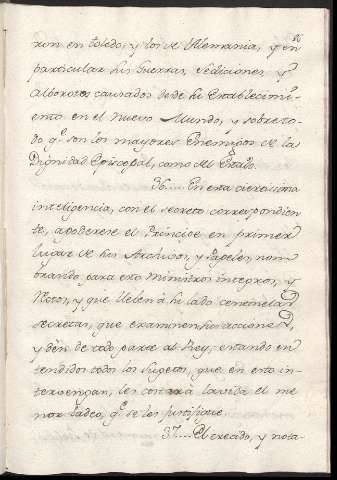 ron en Toledo, y los de Alemania, y en
particular las Guerras, Sediciones, y
Alborotos causados desde su Establecimi-
ento en el Nuevo Mundo, y sobre to-
do q.e son los mayores Enemigos de la
Dignidad Episcopal, como del Estado.
36.... En esta cierissima
inteligencia, con el secreto correspondien-
te, apoderese el Principe en primer
lugar de sus Archivos, y Papeles, nom-
brando para esto Ministros integros, y
Doctos, y que lleven á su lado centinelas
secretas, que examinen sus acciones,
y dén de todo parte al Rey, estando en-
tendidos todos los Sugetos, que en esto in-
tervengan, les costará la vida el me-
nor ladeo, q.e se les justifique.
37.... El crecido, y nota-